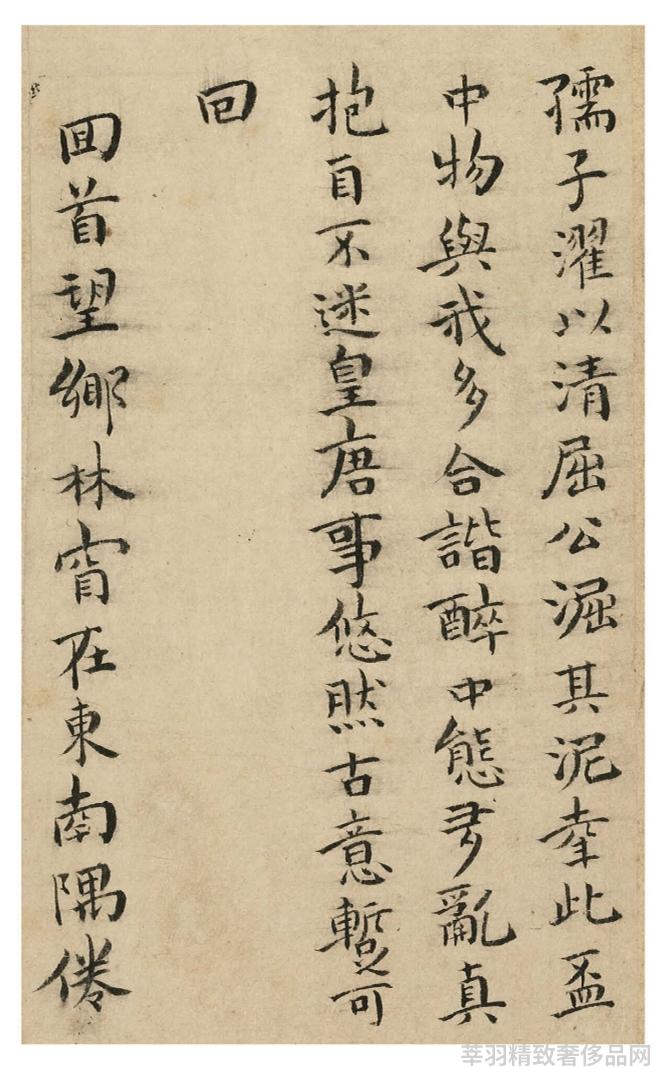 孺子濯以清屈公淈其泥幸此盃
中物與我多合諧醉中態多亂真
抱自不迷皇唐事悠然古意暫可
回
囬首望鄉林宵在東南隅倦
莘羽精致奢侈品网